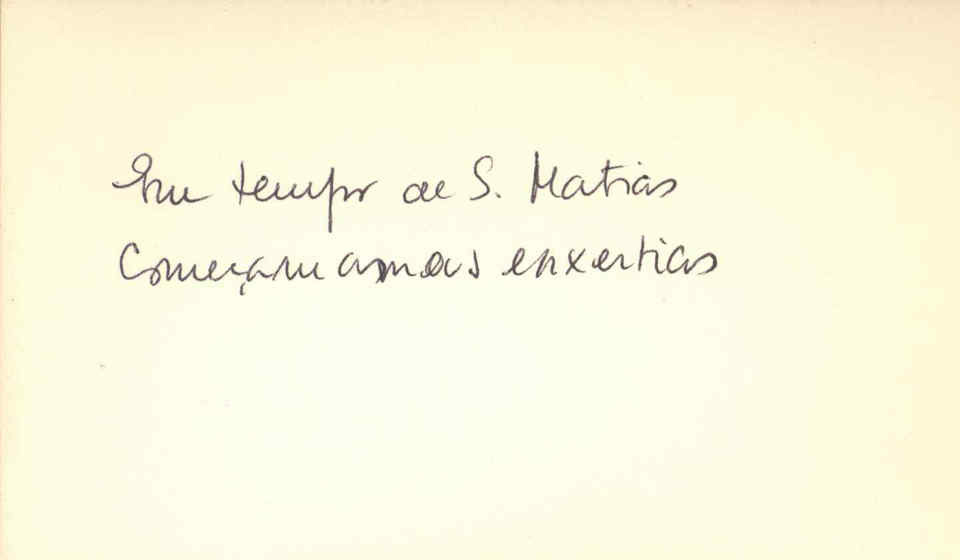 Em tempo de S. Matias
Começam enxertias